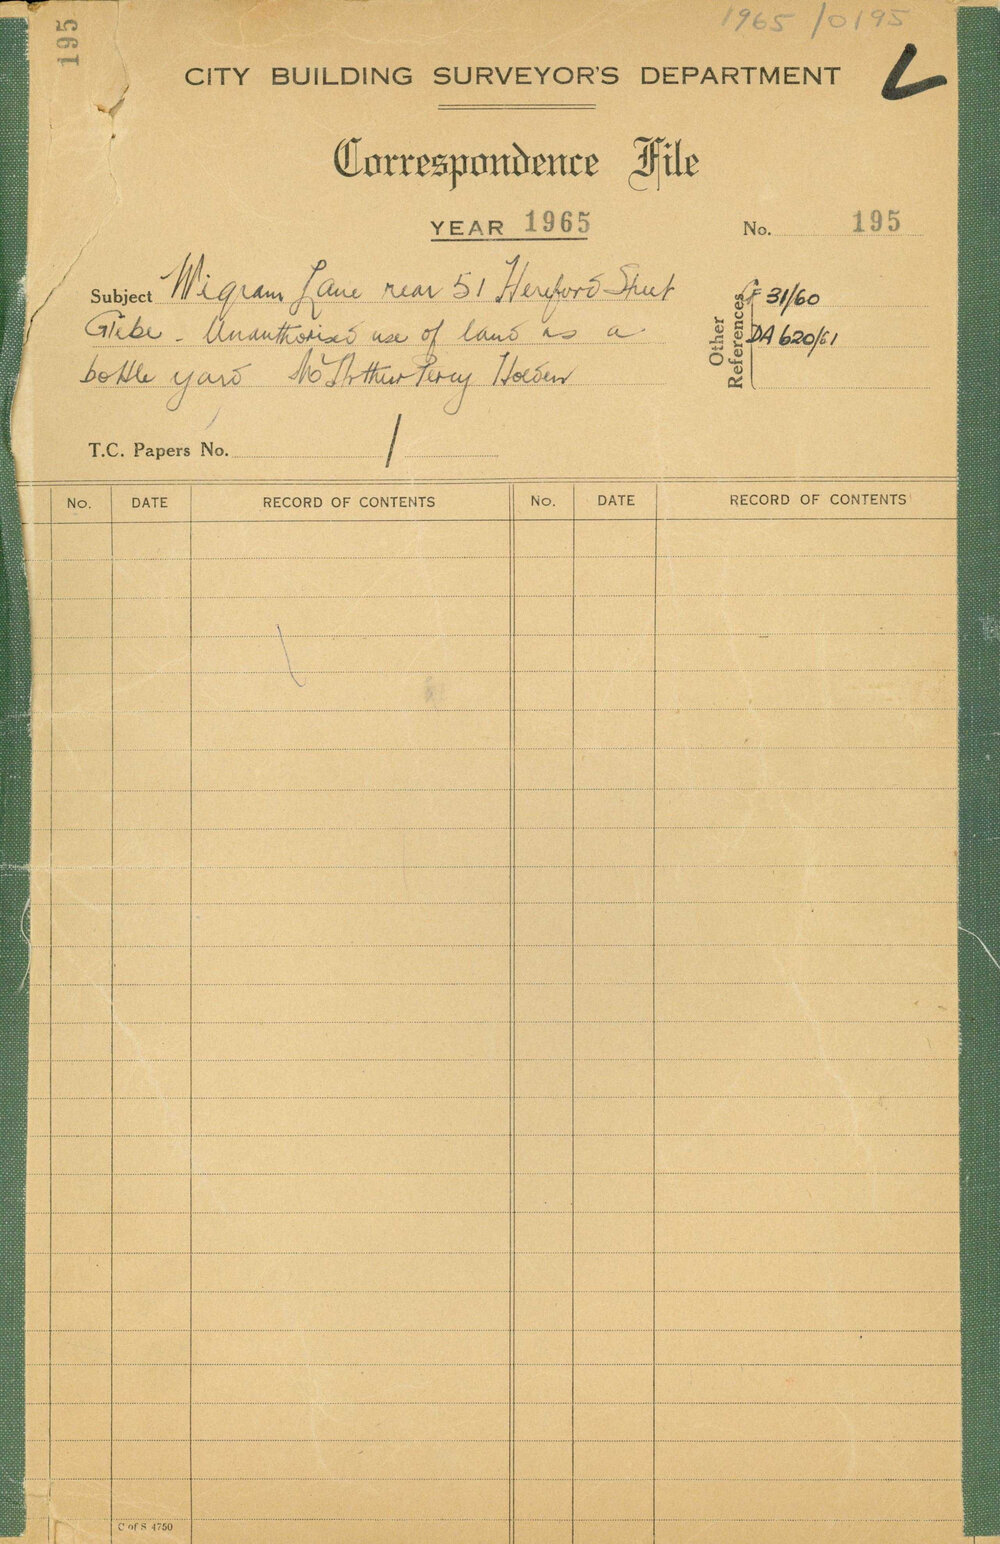 195
1965/0195
CITY BUILDING SURVEYOR'S DEPARTMENT
Correspondence File
YEAR 1965
No. 195
Subject Wigram Lane rear 51 Hereford Street
Glebe - Unauthorised use of land as a
bottle yard Mr Arthur Percy Holden
Other References
CF 31/60
DA 620/61
T.C. Papers No. /
No. DATE RECORD OF CONTENTS No. DATE RECORD OF CONTENTS
C of S 4750